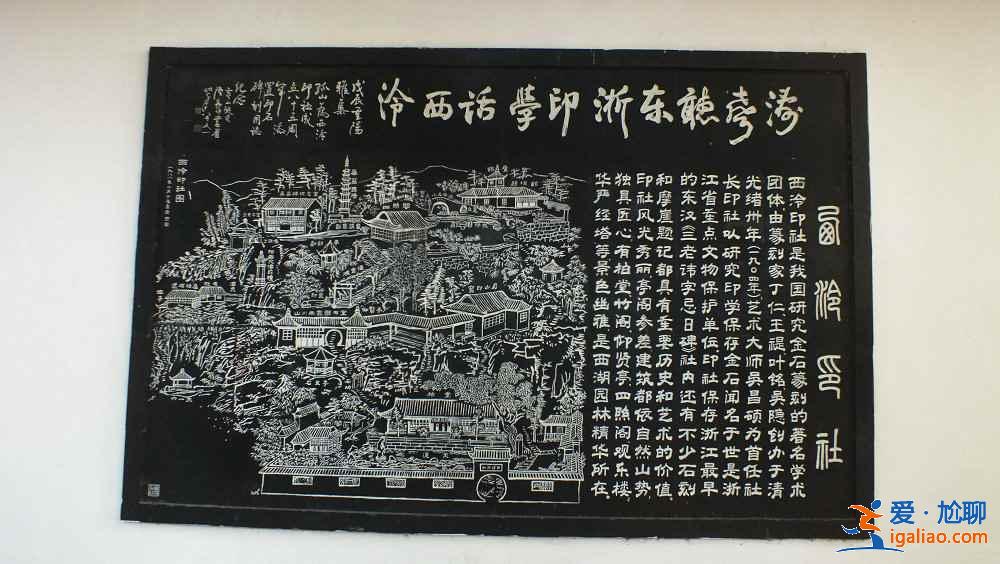 涛声聽东浙印學話西泠
西泠印社
西泠印社是我国研究金石篆刻的著名学术
团体由篆刻家丁仁王禔叶铭吴隐创办于清
光绪卅年(一九〇四年)艺术大师吴昌硕为首任社
长印社以研究印学保存金石闻名于世是浙
江省重点文物保护单位印社保存浙江最早
的东汉《三老讳字忌日碑》社内还有不少石刻
和摩崖题记都具有重要历史和艺术的价值
印社风光秀丽亭阁参差建筑都依自然山势
独具匠心有柏堂竹阁仰贤亭四照阁观乐楼
华严经塔等景色幽雅是西湖园林精华所在
戊辰重陽
雅集
孤山
西泠
印社成
立八十五周
年
置印石
碑刊用誌
紀念
西泠印社图
爱·尬聊
igaliao.com